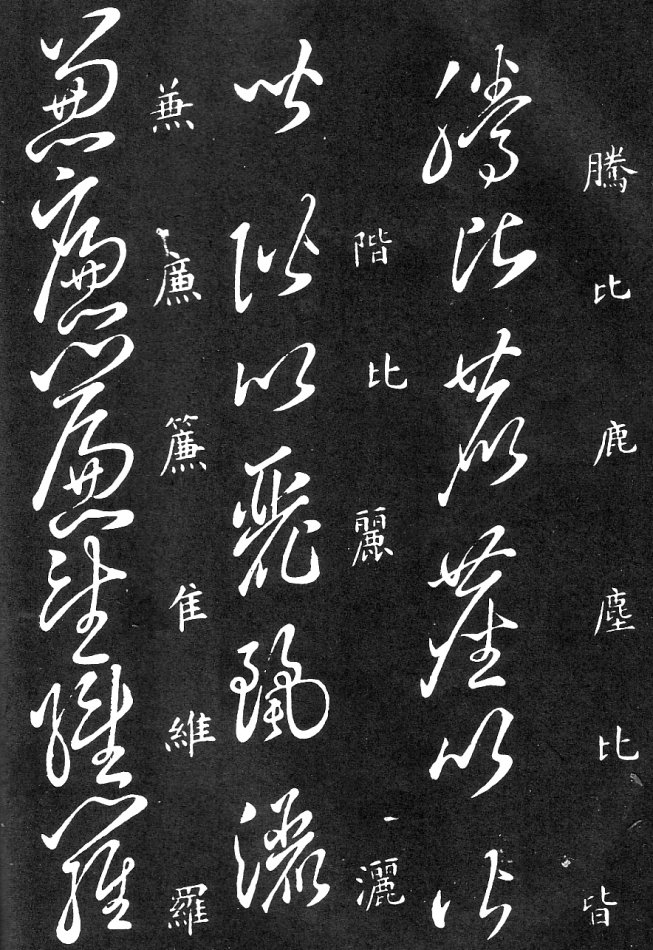 騰比鹿塵比皆
階比麗灑
兼廉簾隹維羅